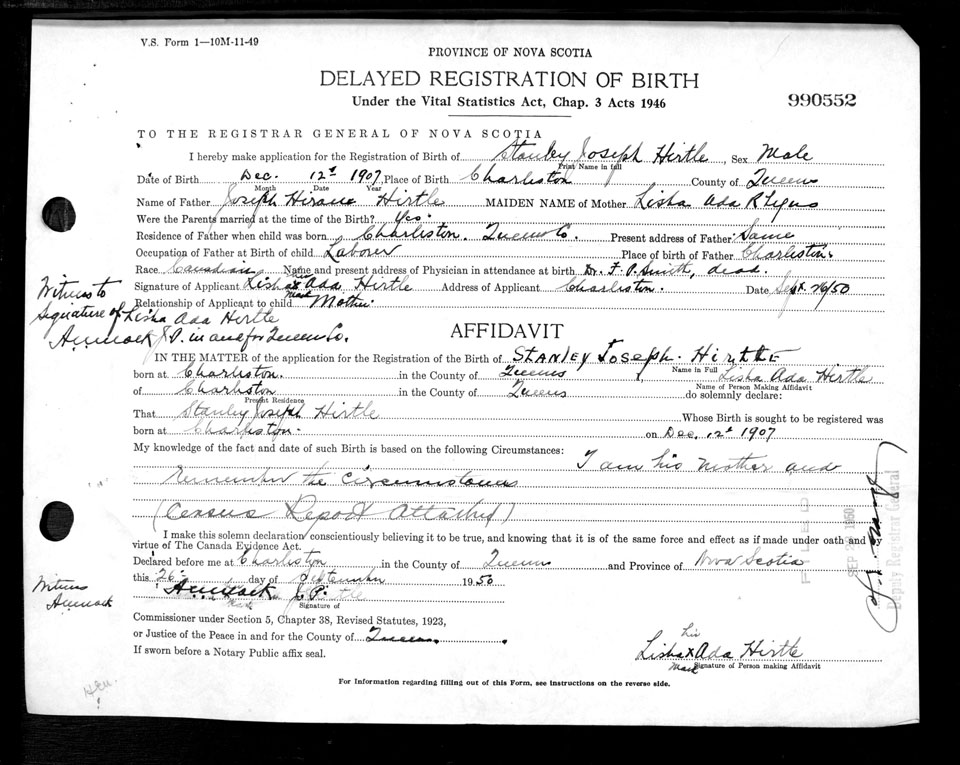 V.S. Form 1—10M-11-49
PROVINCE OF NOVA SCOTIA
DELAYED REGISTRATION OF BIRTH
Under the Vital Statistics Act, Chap. 3 Acts 1946
990552
TO THE REGISTRAR GENERAL OF NOVA SCOTIA
I hereby make application for the Registration of Birth of Stanley Joseph Hirtle, Sex Male
Print Name in full
Date of Birth Dec. 12th 1907 Place of Birth Charleston County of Queens
Month Date Year
Name of Father Joseph Hirtle MAIDEN NAME of Mother Lisha Ada
Were the Parents married at the time of the Birth? Yes.
Residence of Father when child was born Charleston. Queens Co. Present address of Father Same
Occupation of Father at Birth of child Laborer Place of birth of Father Charleston.
Race Canadian Name and present address of Physician in attendance at birth Dr. F. P. Smith, dead.
Signature of Applicant Lisha x Ada Hirtle Address of Applicant Charleston. Date Sept. 26/50
mark
Relationship of Applicant to child Mother.
Witness to
signature of Lisha Ada Hirtle
J.P. in and for Queens Co.
AFFIDAVIT
IN THE MATTER of the application for the Registration of the Birth of STANLEY JOSEPH. HIRTLE
Name in Full
born at Charleston. in the County of Queens Lisha Ada Hirtle
Name of Person Making Affidavit
of Charleston in the County of Queens do solemnly declare:
Present Residence
That Stanley Joseph Hirtle Whose Birth is sought to be registered was
born at Charleston. on Dec. 12th 1907
My knowledge of the fact and date of such Birth is based on the following Circumstances: I am his mother and
Remember the Circumstances
(Census Report Attached)
I make this solemn declaration conscientiously believing it to be true, and knowing that it is of the same force and effect as if made under oath and by
virtue of The Canada Evidence Act.
Declared before me at Charleston in the County of Queens and Province of Nova Scotia
this 26th day of September 1950
J.P.
Signature of
Commissioner under Section 5, Chapter 38, Revised Statutes, 1923,
or Justice of the Peace in and for the County of Queens.
If sworn before a Notary Public affix seal.
Witness
Lisha x Ada Hirtle
mark
Signature of Person making Affidavit
For Information regarding filling out of this Form, see instructions on the reverse side.
FILED
SEP 1950
Deputy Registrar General